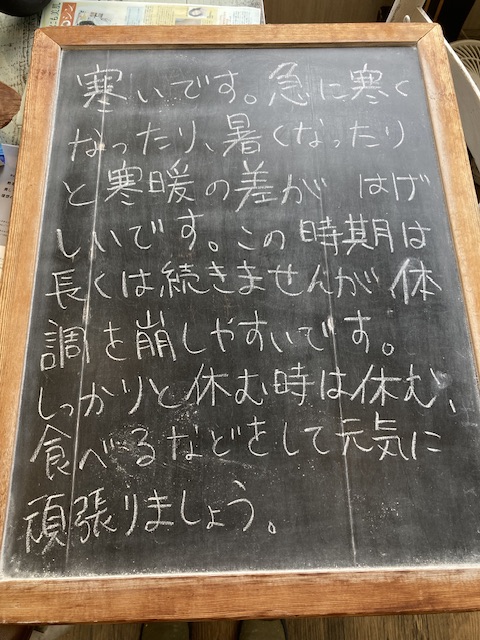 寒いです。急に寒く
なったり、暑くなったり
と寒暖の差が はげ
しいです。この時期は
長くは続きませんが休
調を崩しやすいです。
しっかりと休む時は休む、
食べるなどをして元気に
頑張りましょう。